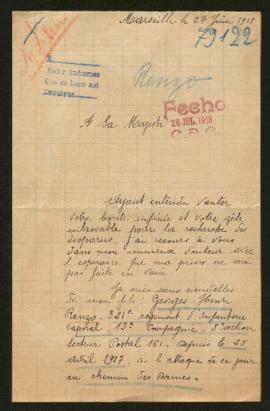 Marseille le 27 Juin 1918
79122
Pedir informes
Que se hace así
Devolver
Renzo
Fecho
26 JUL. 1918
A Sa Majesté
Ayant entendu vanter
votre bonté infinie et votre zèle
inlassable pour la recherche des
disparus, j'ai recours à vous
dans mon immense douleur avec
l'espérance que ma prière ne sera
pas faite en vain.
Je suis sans nouvelles
de mon fils Georges Henri
Renzo - 221e régiment d'Infanterie
caporal, 13me Compagnie, section
secteur Postal 161. Depuis le 25
Avril 1917, à l'attaque de ce jour
au chemin des Dames.